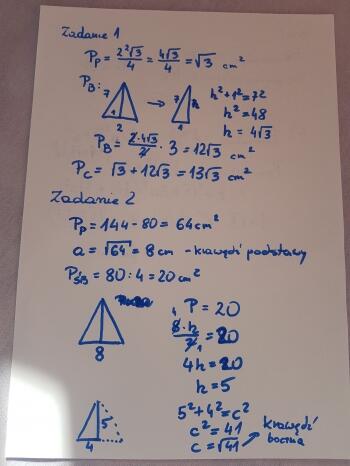 Zadanie 1
Pp = 2²√3/4 = 4√3/4 = √3 cm²
PB:
7 1 2 → 7 h 1
h²+1²=7²
h² = 48
h = 4√3
PB = 2·4√3/2 · 3 = 12√3 cm²
Pc = √3 + 12√3 = 13√3 cm²
Zadanie 2
Pp = 144 - 80 = 64 cm²
a = √64 = 8 cm - krawędź podstawy
PśB = 80 : 4 = 20 cm²
8
P = 20
4 8·h/2 1 = 20
4h = 20
h = 5
5 4
5²+4² = c²
c² = 41
c = √41
krawędź
boczna